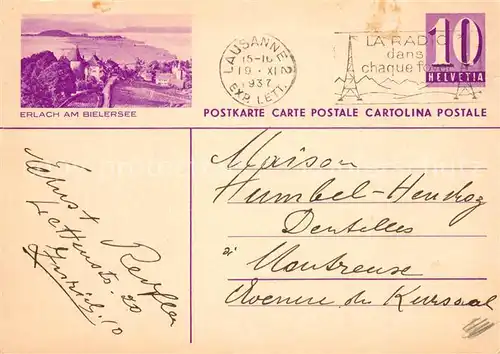 ERLACH AM BIELERSEE
LAUSANNE 2
15-16
19·XI
1937
EXP. LETT.
LA RADIO
dans
chaque
10
HELVETIA
POSTKARTE CARTE POSTALE CARTOLINA POSTALE
Maison
Humbel-Herzog
Dentelles
à Montreuse
Avenue du Kursaal
20
Zürich 10